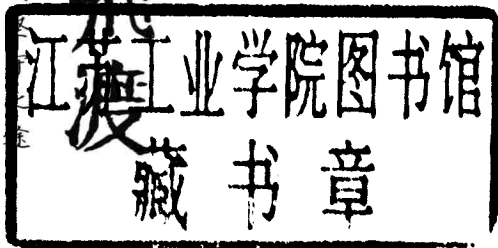 江苏工业学院图书馆
藏书章
渡